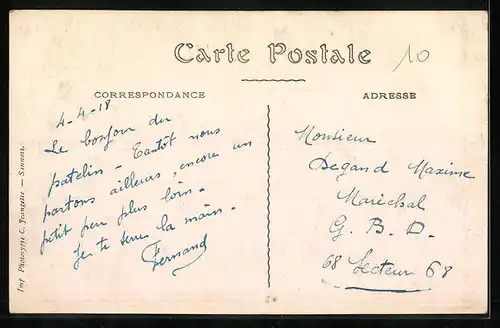 Carte Postale
10
CORRESPONDANCE
ADRESSE
4-4-18
Le bonjour du
patelin - Tantôt nous
partons ailleurs, encore un
petit peu plus loin -
Je te serre la main -
Fernand
Monsieur
Degand Maxime
Maréchal
G. B. D.
68 Secteur 68
Imp. Phototypie C.